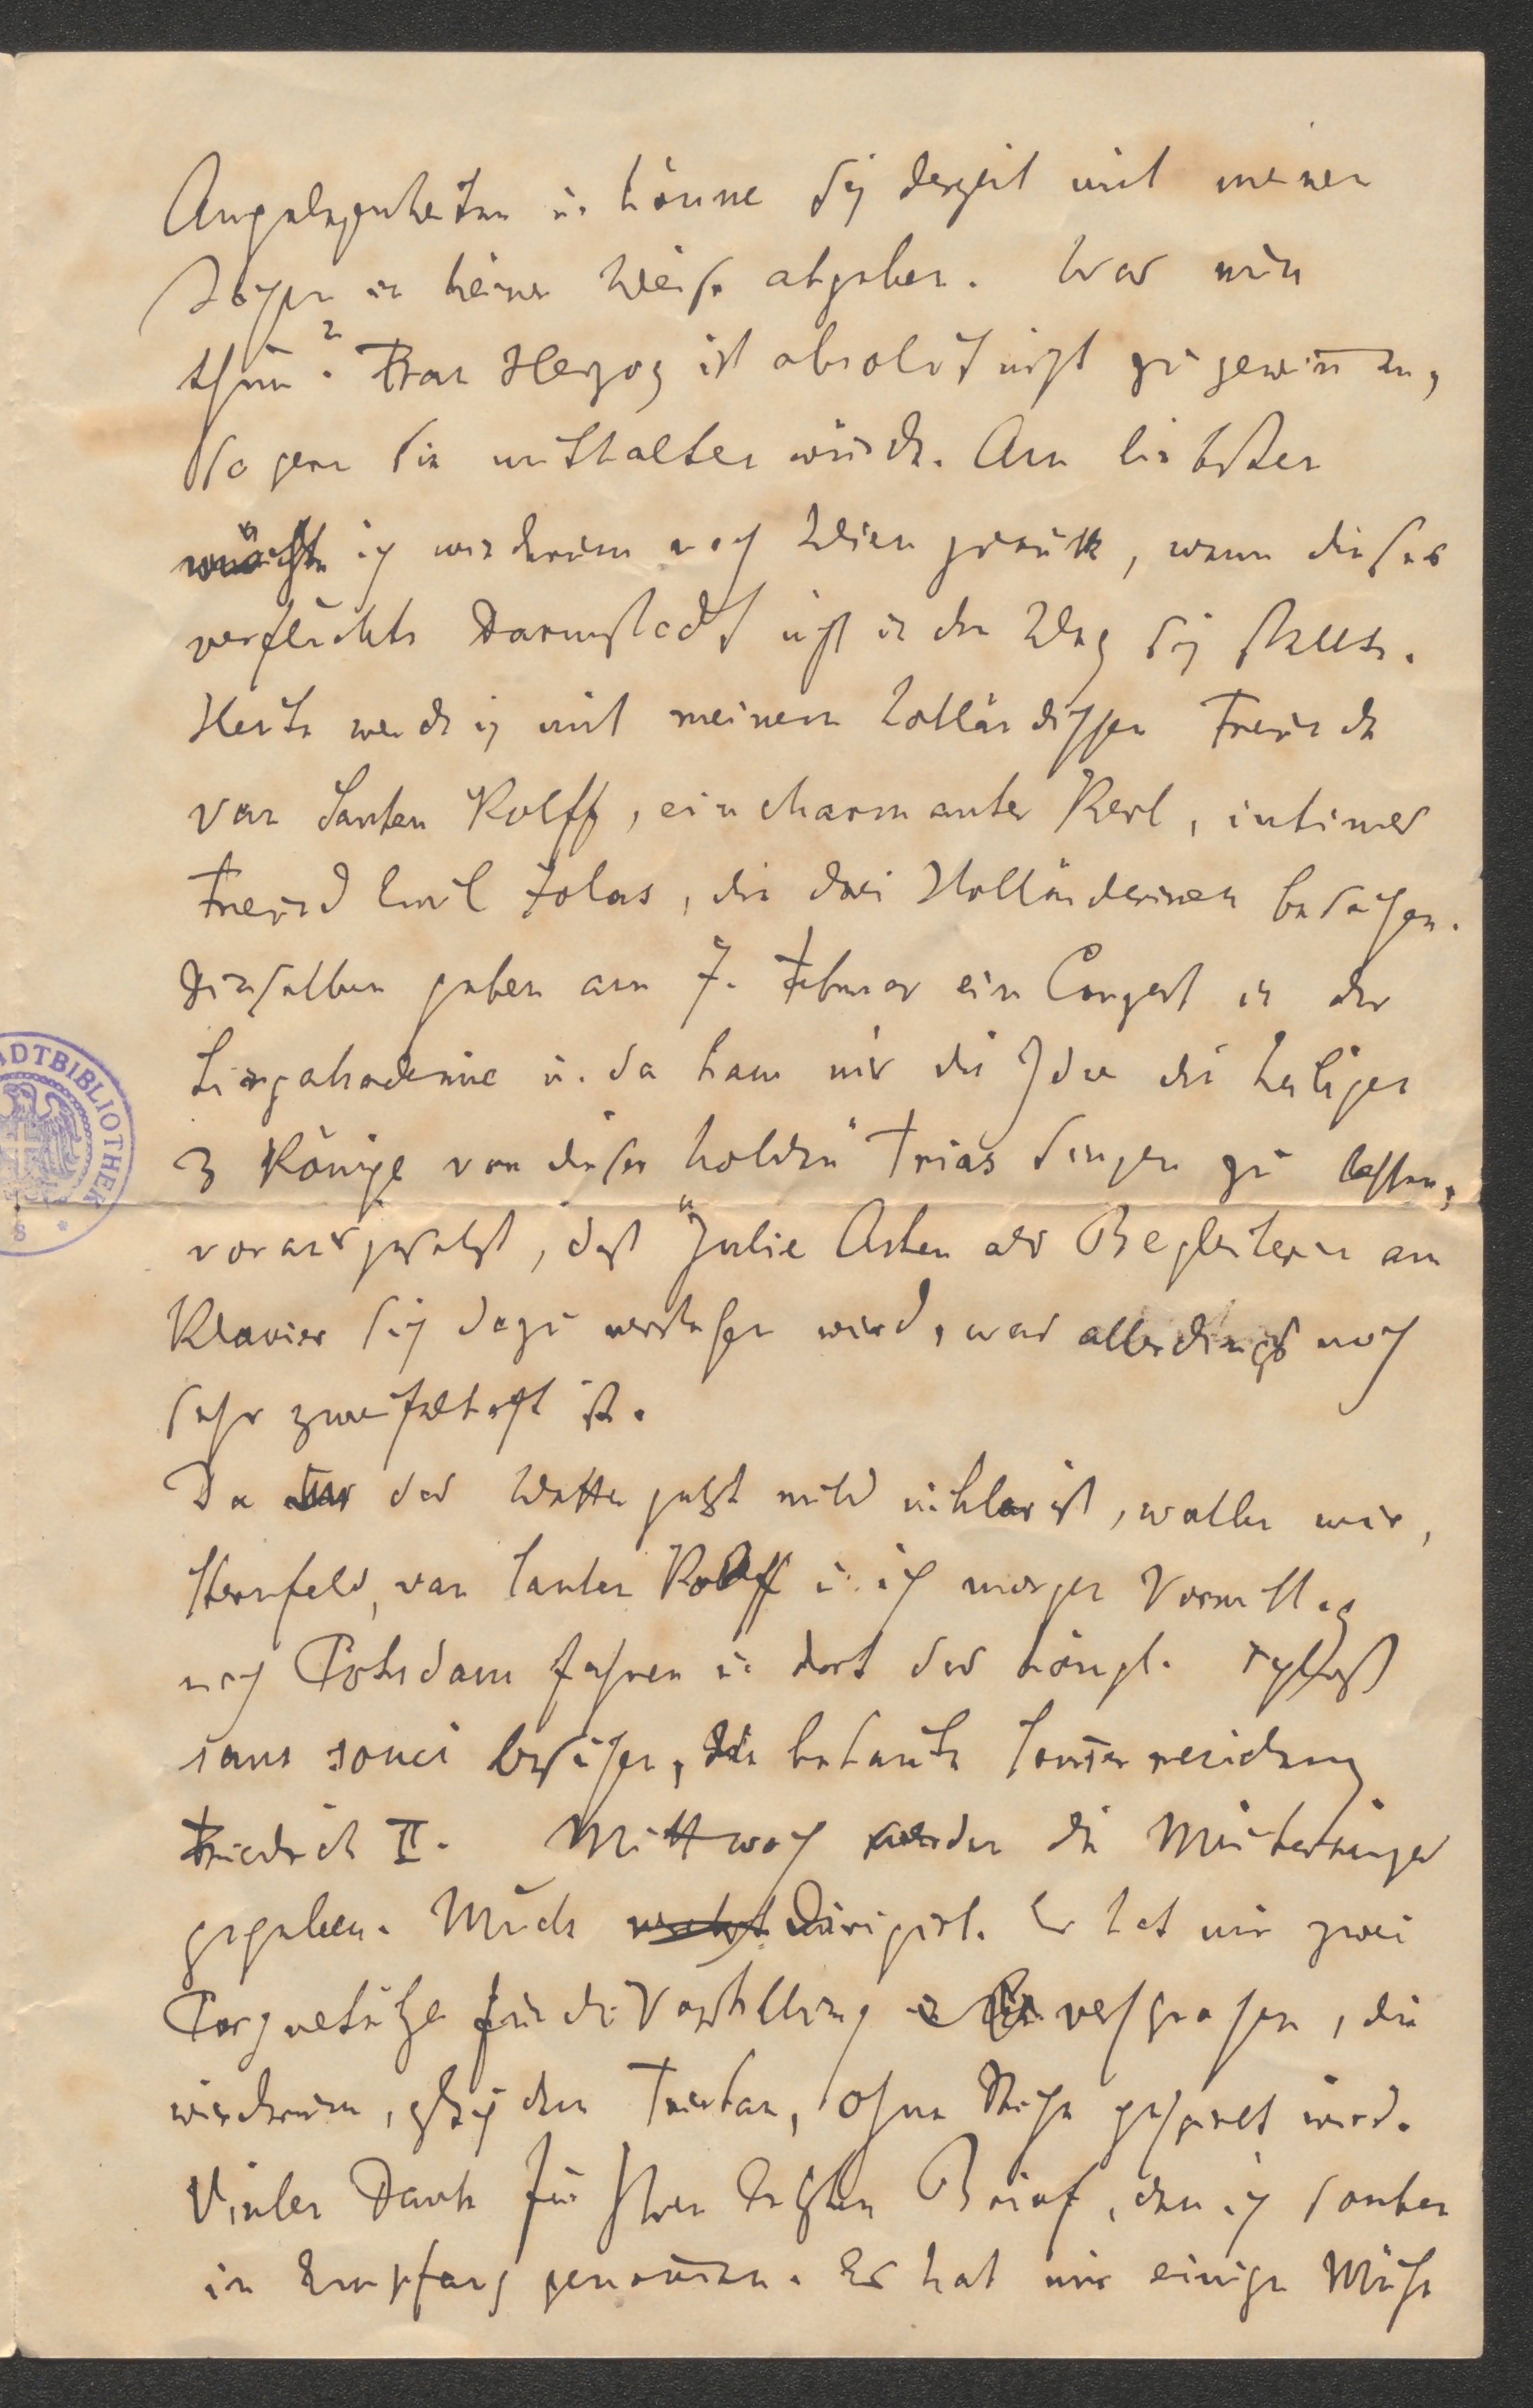 Angelegenheiten u. könne sich derzeit mit meinen
Sachen in keiner Weise abgeben. Was nun
thun? Frau Herzog ist absolut nicht zu gewinnen,
so gern sie mithalten würde. Am liebsten
möchte ich wiederum nach Wien zurück, wenn dieses
verfluchte Darmstadt nicht in den Weg sich stellte.
Heute werde ich mit meinem holländischen Freunde
van Santen Kolff, ein charmanter Kerl, intimer
Freund Emil Zolas, die drei Holländerinen besuchen.
Dieselben geben am 7. Februar ein Conzert in der
Singakademie u. da kam mir die Idee die heiligen
3 Könige von dieser „holden" Trias singen zu lassen,
vorausgesetzt, daß Julie Asten als Begleiterin am
Klavier sich dazu verstehen wird, was allerdings noch
sehr zweifelhaft ist.
Da das Wetter jetzt mild u. klar ist, wollen wir,
Sternfeld, van Santen Kolff u. ich morgen Vormittag
nach Potsdam fahren u. dort das königl. Schloß
sans souci besuchen, die bekannte Sommerresidenz
Friedrich II. Mittwoch werden die Meistersinger
gegeben. Muck dirigirt. Er hat mir zwei
Parquetsitze für die Vorstellung versprochen, die
wiederum, gleich dem Tristan, ohne Striche gespielt wird.
Vielen Dank für Ihren letzten Brief, den ich soeben
in Empfang genommen. Es hat mir einige Mühe
STADTBIBLIOTHEK